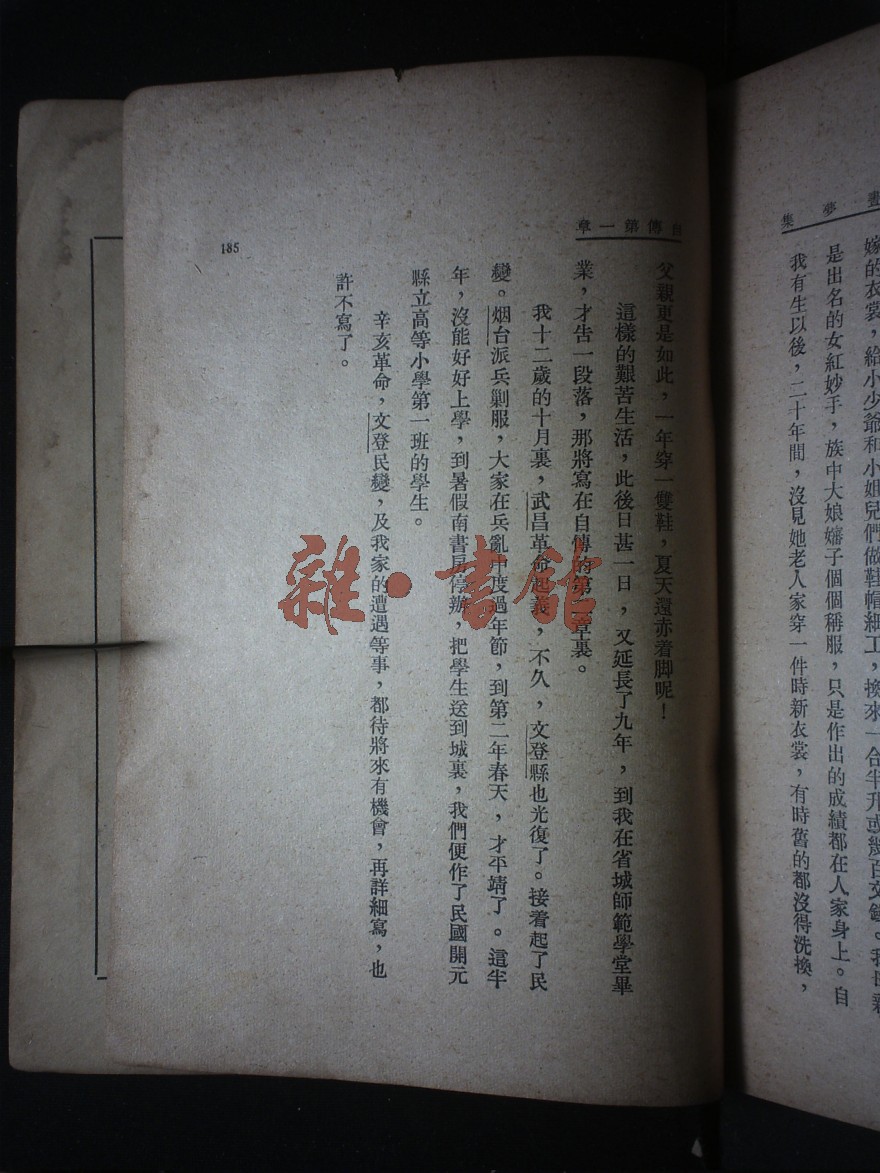 畫夢集
嫁的衣裳，給小少爺和小姐兒們做鞋帽細工，換來一合半升或幾百文錢。我母親
是出名的女紅妙手，族中大娘嬸子個個稱服，只是作出的成績都在人家身上。自
我有生以後，二十年間，沒見她老人家穿一件時新衣裳，有時舊的都沒得洗換，
自傳第一章
父親更是如此，一年穿一雙鞋，夏天還赤着脚呢！
這樣的艱苦生活，此後日甚一日，又延長了九年，到我在省城師範學堂畢
業，才告一段落，那將寫在自傳的第二章裏。
我十二歲的十月裏，武昌革命起義，不久，文登縣也光復了。接着起了民
變。烟台派兵剿服，大家在兵亂中度過年節，到第二年春天，才平靖了。這半
年，沒能好好上學，到暑假南書房停辦，把學生送到城裏，我們便作了民國開元
縣立高等小學第一班的學生。
辛亥革命，文登民變，及我家的遭遇等事，都待將來有機會，再詳細寫，也
許不寫了。
185
雜·書館